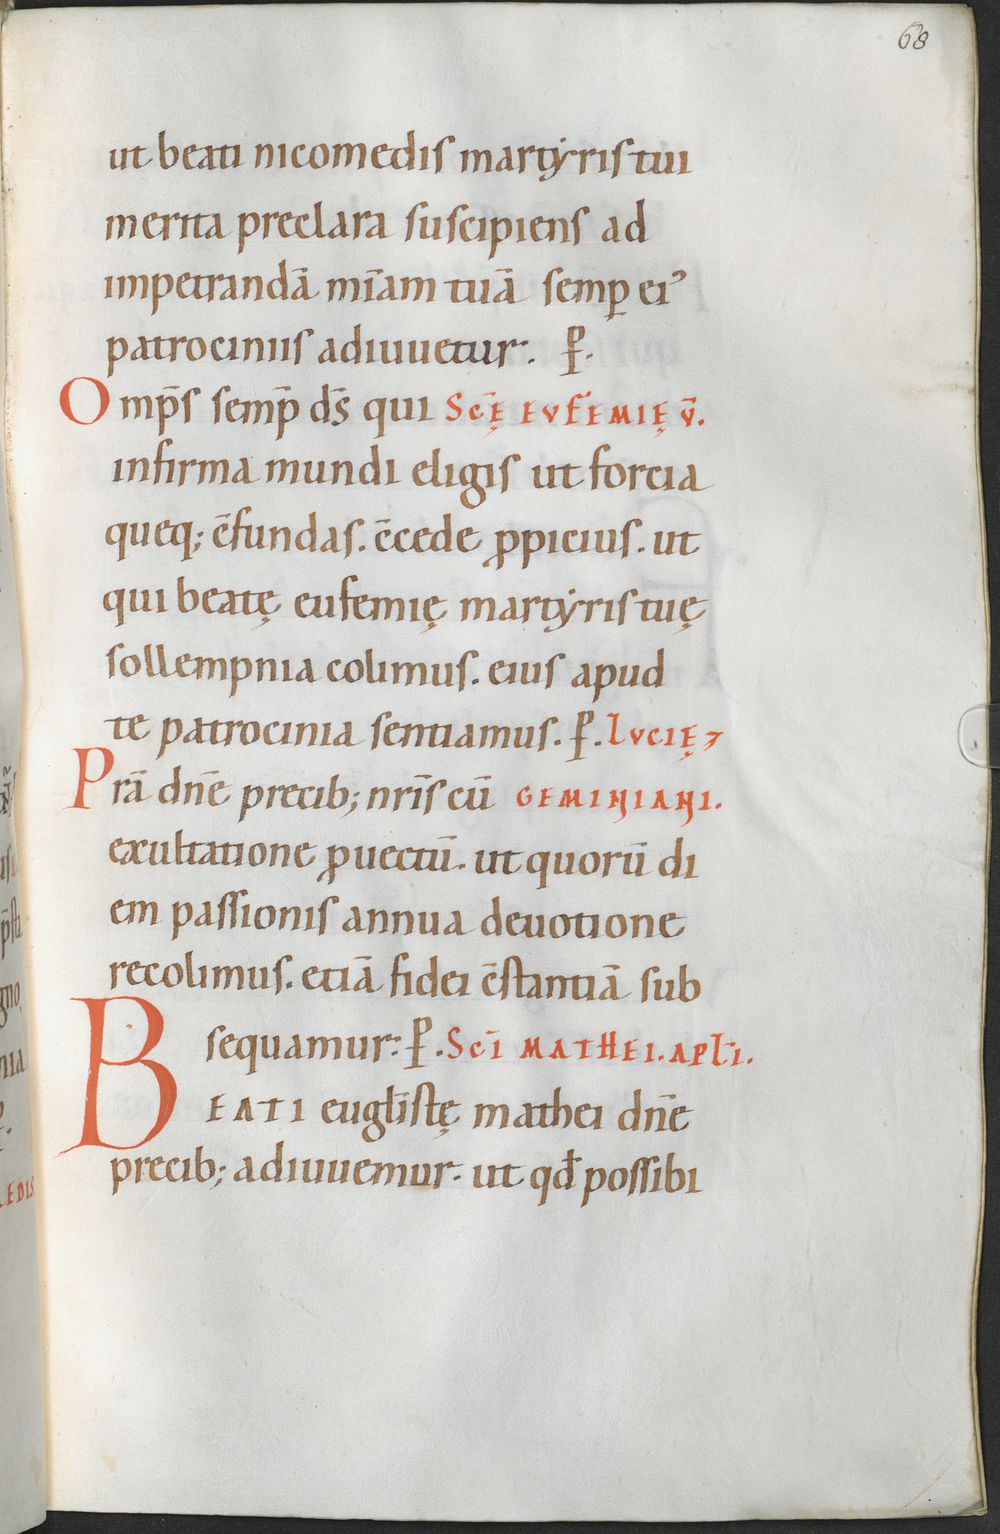 68
ut beati nicomedis martẏris tui
merita preclara suscipiens ad
impetrandā mīam tuā semꝑ ei᾽
patrociniis adiuuetur. P̵.
Omp̄s semp̄ dš qui Scę̄ EVFEMIĘ v̄.
infirma mundi eligis ut forcia
queq; c̄fundas. c̄cede ꝓpicius. ut
qui beatę eufemię martẏris tuę
sollempnia colimus. eius apud
te patrocinia sentiamus. P̵. LVCIĘ ⁊
Prā dn̄e precib; nr̄is cū GEMINIANI.
exultatione ꝓuectū. ut quorū di
em passionis annua deuotione
recolimus. etiā fidei c̄stantiā sub
sequamur. P̵. Scī MATHEI. APLI.
BEATI eugl̄istę mathei dn̄e
precib; adiuuemur. ut qđ possibi